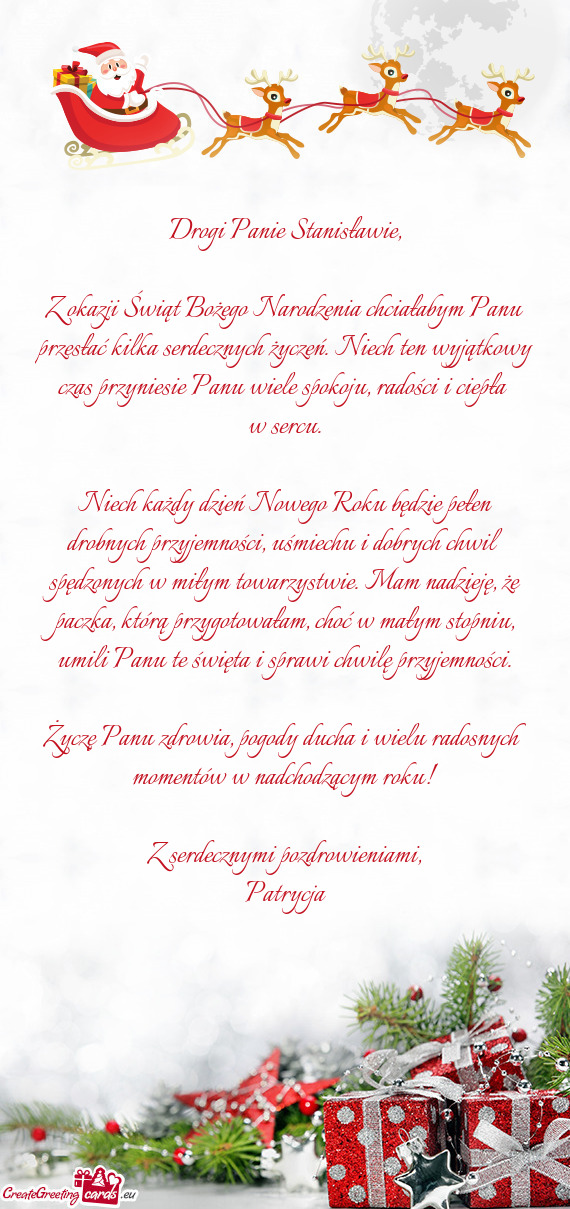 Drogi Panie Stanisławie,
Z okazji Świąt Bożego Narodzenia chciałabym Panu
przesłać kilka serdecznych życzeń. Niech ten wyjątkowy
czas przyniesie Panu wiele spokoju, radości i ciepła
w sercu.
Niech każdy dzień Nowego Roku będzie pełen
drobnych przyjemności, uśmiechu i dobrych chwil
spędzonych w miłym towarzystwie. Mam nadzieję, że
paczka, którą przygotowałam, choć w małym stopniu,
umili Panu te święta i sprawi chwilę przyjemności.
Życzę Panu zdrowia, pogody ducha i wielu radosnych
momentów w nadchodzącym roku!
Z serdecznymi pozdrowieniami,
Patrycja
CreateGreeting cards .eu